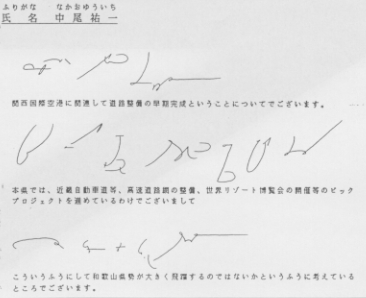 ふりがな なかおゆういち
氏 名 中尾祐一
関西国際空港に関連して道路整備の早期完成ということについてでございます。
本県では、近畿自動車道等、高速道路網の整備、世界リゾート博覧会の開催等のビック
プロジェクトを進めているわけでございまして
こういうふうにして和歌山県勢が大きく飛躍するのではないかというふうに考えている
ところでございます。